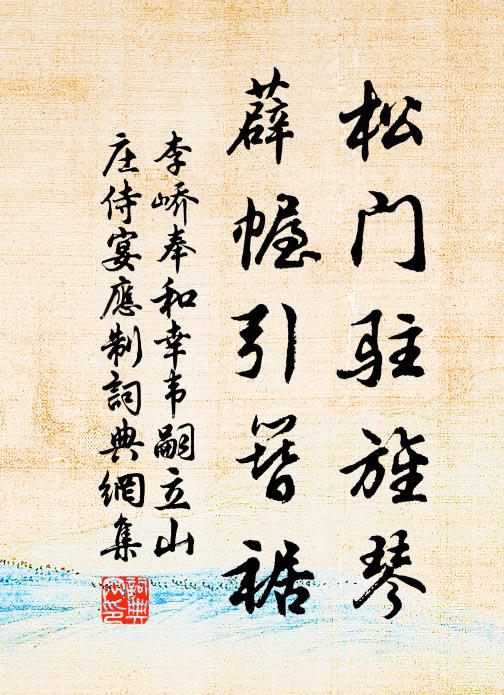 松门驻旌琴
薜幄引簪裾
李峤奉和幸韦嗣立山
庄侍宴應制詞典網集